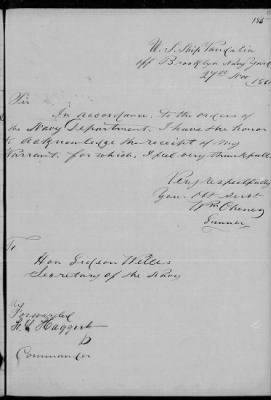 U. S. Ship Vandalia
off Brooklyn Navy Yard
27th Nov
Sir
In accordance, to the orders of
the Navy Department, I have the honor
to acknowledge the receipt of my
Warrant, for which, I feel very thankfull.
Very respectfully
Your Obt Servt
Wm Cheney
Gunner
To
Hon Gideon Welles
Secretary of the Navy
Forwarded
Haggerty
Commander